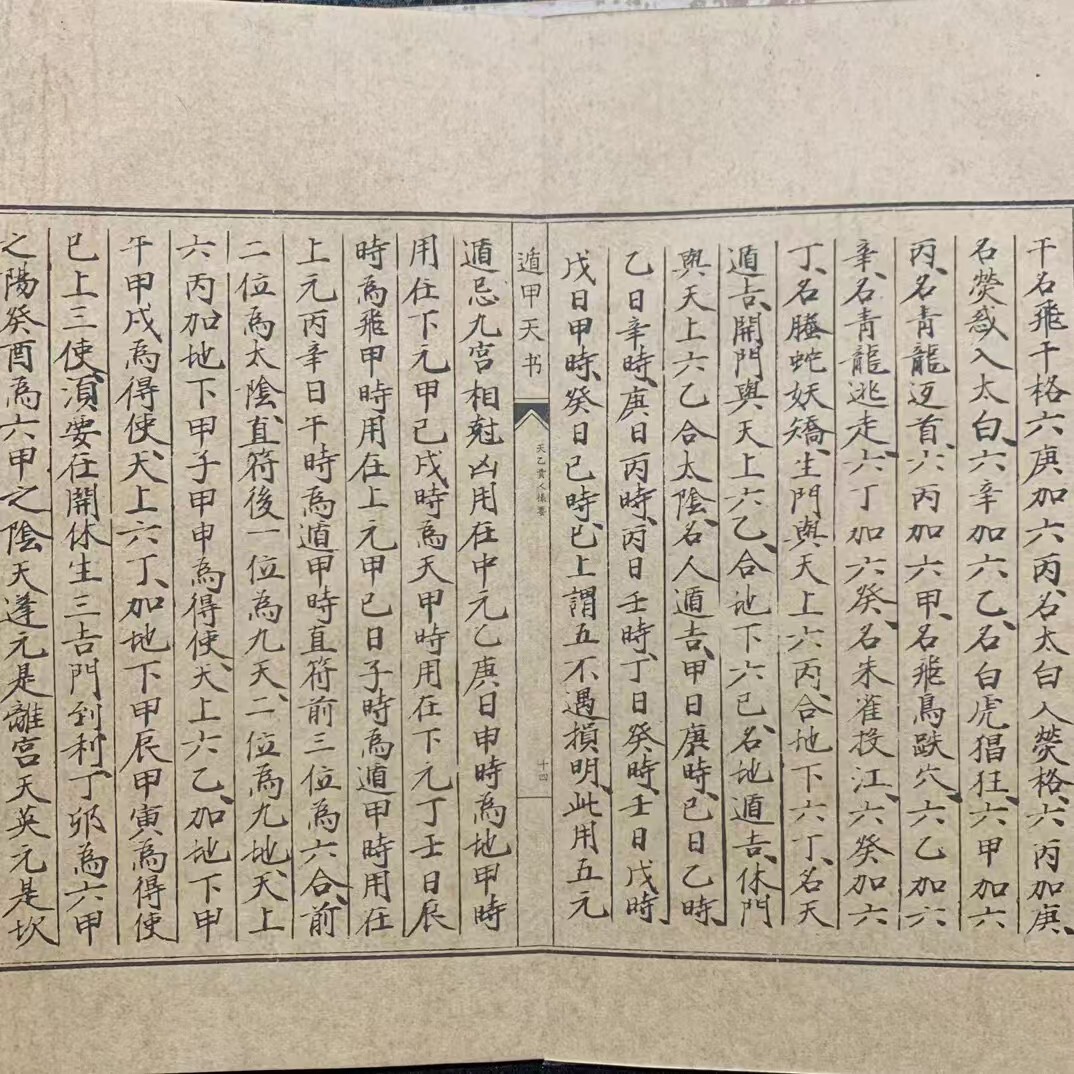 干名飛干格六庚加六丙、名太白入熒格、六丙加庚、
名熒惑入太白、六辛加六乙、名白虎猖狂、六甲加六
丙、名青龍返首、六丙加六甲、名飛鳥跌穴、六乙加六
辛、名青龍逃走、六丁加六癸、名朱雀投江、六癸加六
丁、名螣蛇妖矯、生門與天上六丙、合地下六丁、名天
遁吉、開門與天上六乙、合地下六己、名地遁吉、休門
與天上六乙合太陰、名人遁吉、甲日庚時、己日乙時
乙日辛時、庚日丙時、丙日壬時、丁日癸時、壬日戊時
戊日甲時、癸日己時、已上謂五不遇損明、此用五元
遁甲天书
天乙貴人備要
十四
遁忌九宮相尅凶用在中元乙庚日申時為地甲時
用在下元甲己戌時為天甲時用在下元丁壬日辰
時為飛甲時用在上元甲己日子時為遁甲時用在
上元丙辛日午時為遁甲時直符前三位為六合、前
二位為太陰、直符後一位為九天、二位為九地、天上
六丙、加地下甲子甲申為得使、天上六乙、加地下甲
午甲戌為得使、天上六丁、加地下甲辰甲寅為得使
已上三使、湏要在開休生三吉門到利、丁卯為六甲
之陽癸酉為六甲之陰天蓬元是離宮天英元是坎